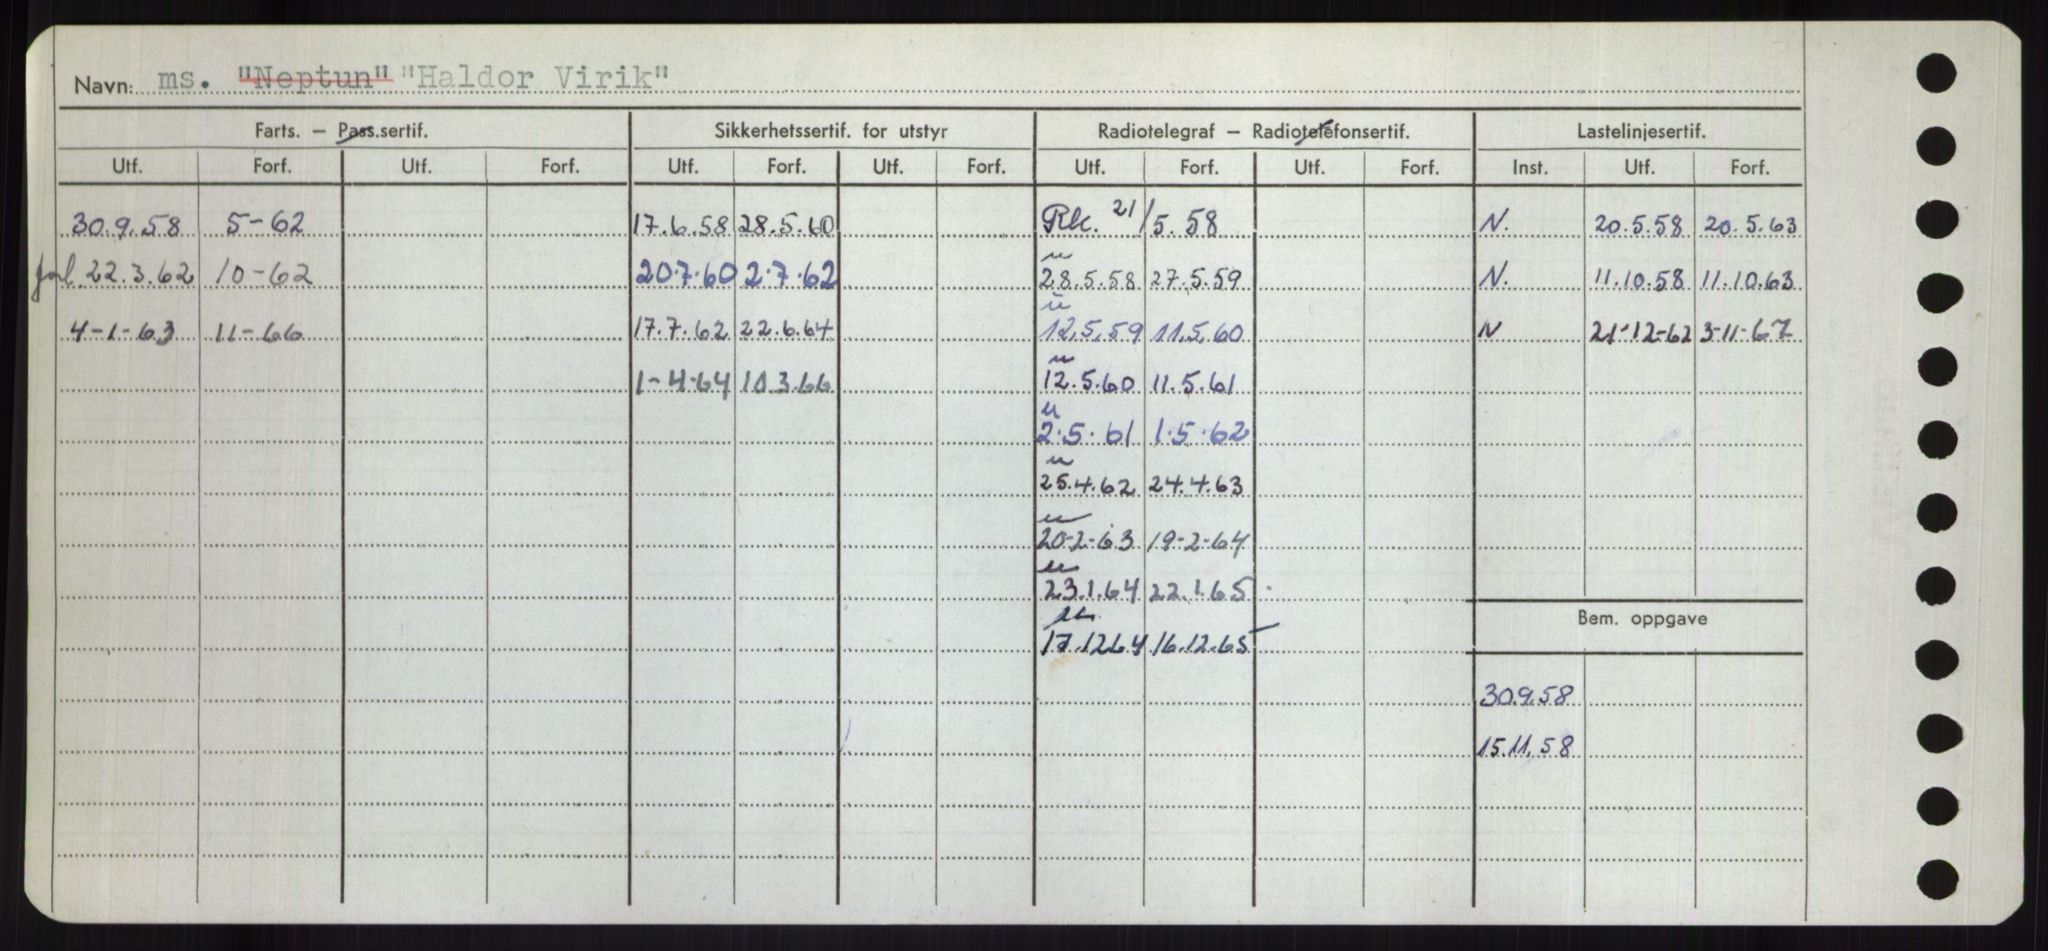 Navn: ms. "Neptun" "Haldor Virik"
Farts. — Pass.sertif. Sikkerhetssertif. for utstyr Radiotelegraf — Radiotelefonsertif. Lastelinjesertif.
Utf. Forf. Utf. Forf. Utf. Forf. Utf. Forf. Utf. Forf. Utf. Forf. Inst. Utf. Forf.
30.9.58 5-62 17.6.58 28.5.60 Rk. 21/5.58 N. 20.5.58 20.5.63
forl. 22.3.62 10-62 20.7.60 2.7.62 28.5.58 27.5.59 N. 11.10.58 11.10.63
4-1-63 11-66 17.7.62 22.6.64 12.5.59 11.5.60 N 21-12-62 3-11-67
1-4-64 10.3.66 12.5.60 11.5.61
2.5.61 1.5.62
25.4.62 24.4.63
20-2-63 19-2-64
23.1.64 22.1.65
Bem. oppgave
17.12.64 16.12.65
30.9.58
15.11.58